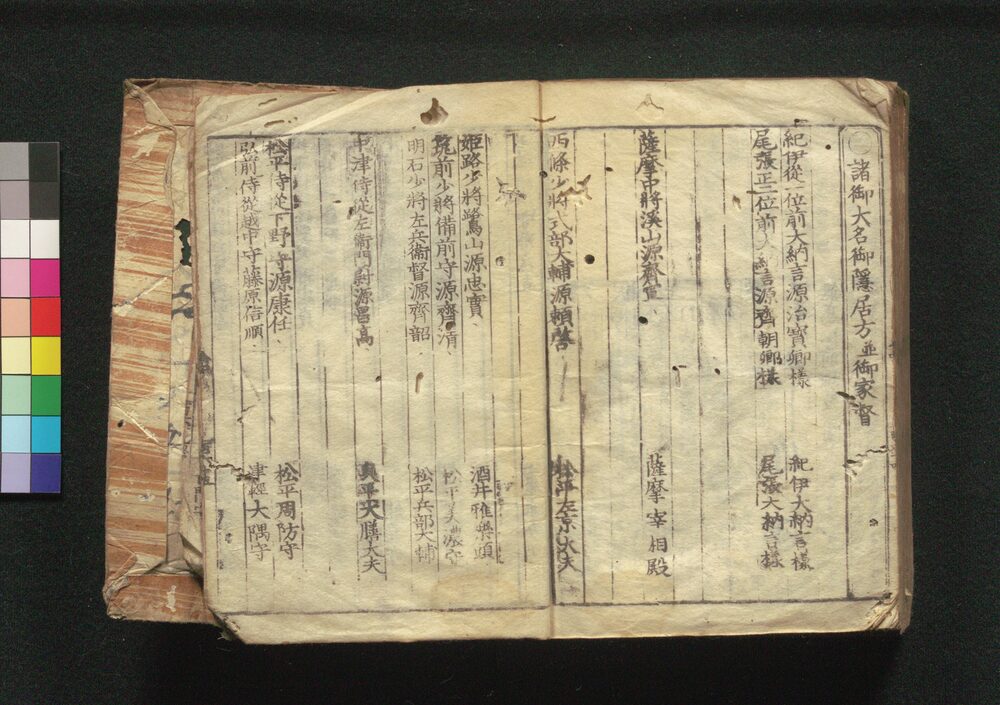 諸御大名御隱居方並御家督
紀伊從一位前大納言源治寳卿様
紀伊大納言様
尾張正二位前大納言源齊朝卿様
尾張大納言様
薩摩中將溪山源齊宣、
薩摩宰相殿
西條少將式部大輔源頼啓
松平左京大夫
姫路少將鷺山源忠實、
酒井雅樂頭
筑前少將備前守源齊清、
松平美濃守
明石少將左兵衞督源齊韶
松平兵部大輔
中津侍從左衞門尉源昌高
奥平大膳大夫
松平侍從下野守源康任、
松平周防守
弘前侍從越中守藤原信順、
津輕大隅守